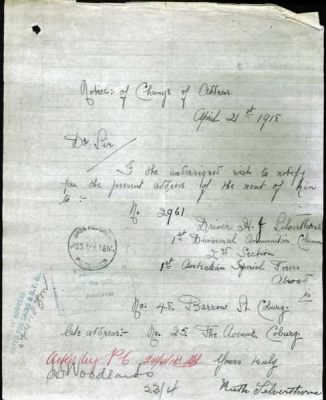 Notice:- of Change of Address.
April 21st 1918
Dr Sir
I the undersigned wish to notify
you the present address of the next of kin
to :-
No. 2961
Driver H. J. Silverthorne
1st Divisional Ammunition Column
2nd Section
1st Australian Imperial Force
Abroad
is
No: 48. Barrow St. Coburg.
late address:- No. 25 The Avenue Coburg.
Yours truly
Woodlands
23/4
Ruth Silverthorne